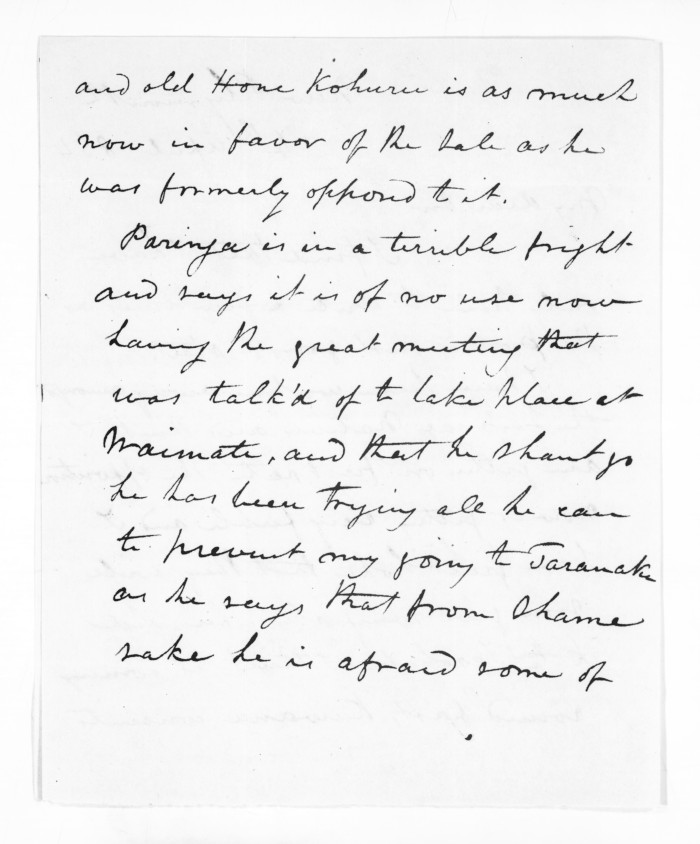 and old Hone Kohuru is as much
now in favor of the sale as he
was formerly opposed to it.
Paringa is in a terrible fright
and says it is of no use now
having the great meeting that
was talk'd of to take place at
Waimate, and that he shant go
he has been trying all he can
to prevent my going to Taranaki
as he says that from Shame
sake he is afraid some of